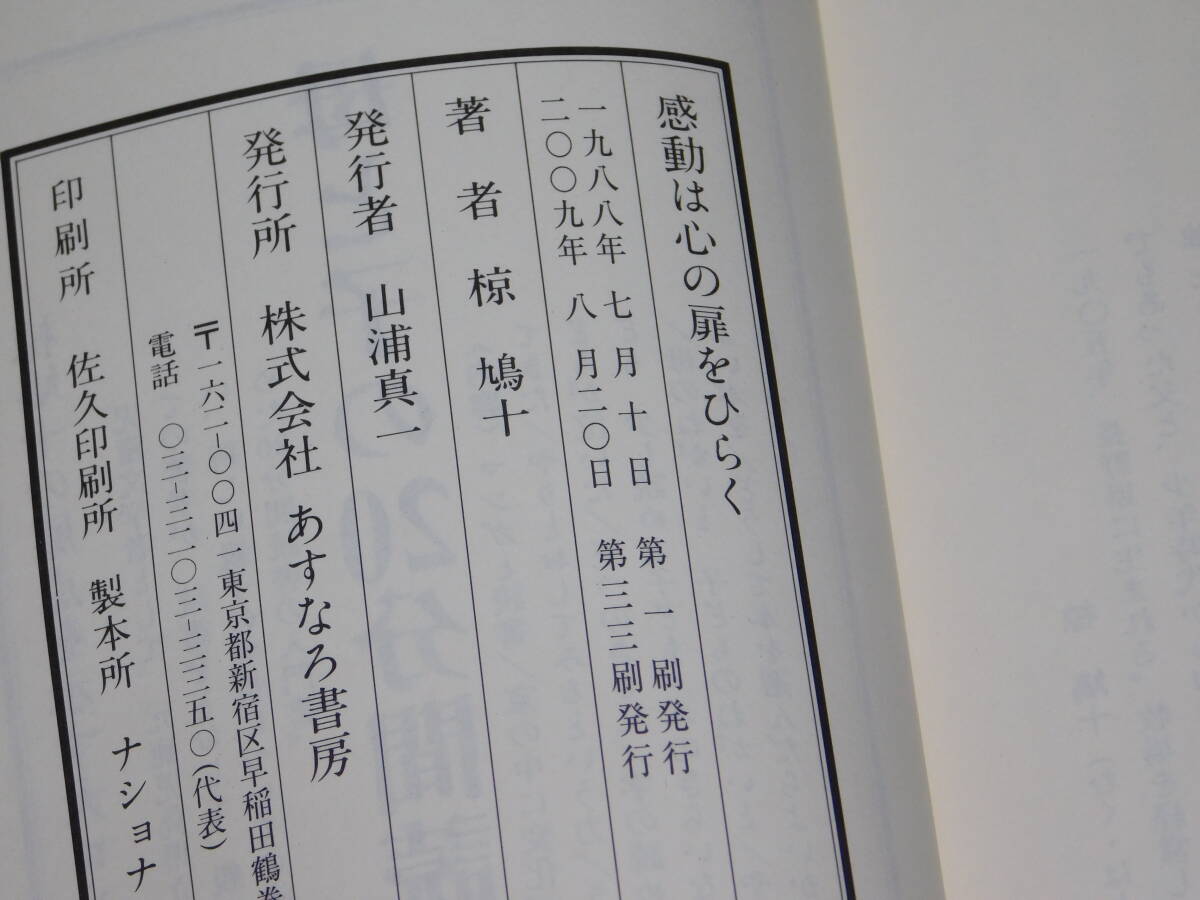 感動は心の扉をひらく
一九八八年 七月十日 第一刷発行
二〇〇九年 八月二〇日 第三三刷発行
著者 椋 鳩十
発行者 山浦真一
発行所 株式会社 あすなろ書房
〒一六二-〇〇四一 東京都新宿区早稲田鶴巻
電話 〇三-三二〇三-三三五〇(代表)
印刷所 佐久印刷所 製本所 ナショナ